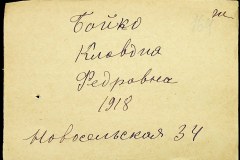 Бойко
Клавдиа
Федровна
1918
Новосельская 34